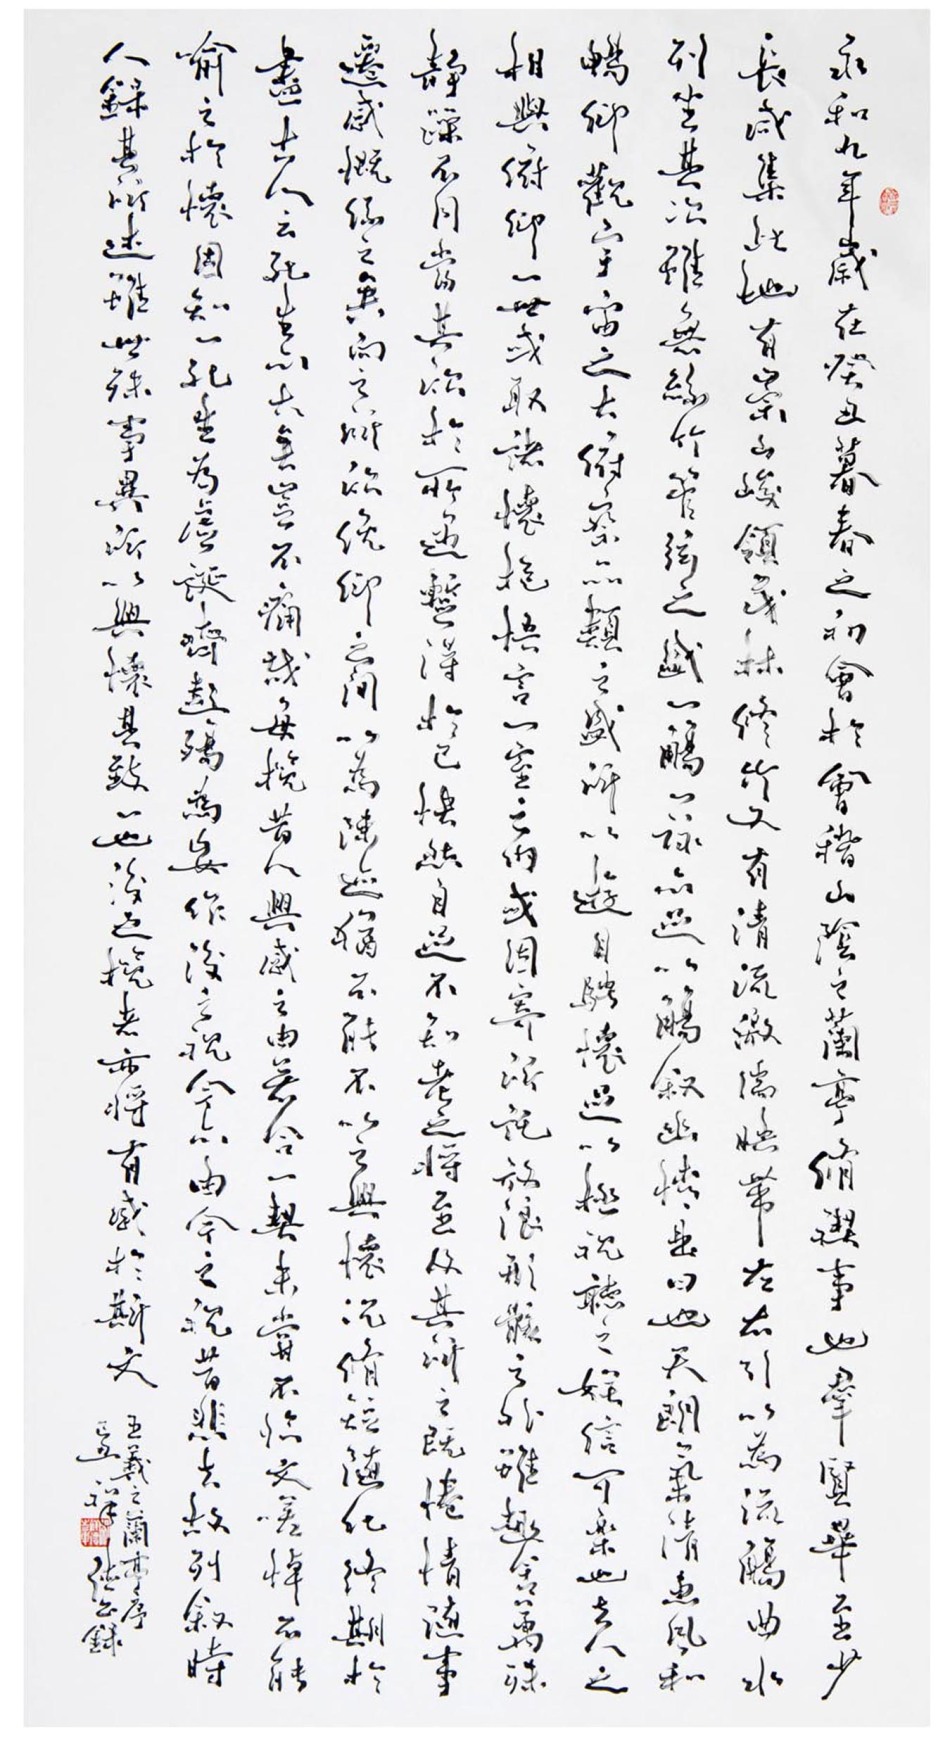 永和九年歲在癸丑暮春之初會於會稽山陰之蘭亭脩禊事也羣賢畢至少
長咸集此地有崇山峻領茂林修竹又有清流激湍暎帶左右引以為流觴曲水
列坐其次雖無絲竹管弦之盛一觴一詠亦足以暢敘幽情是日也天朗氣清惠風和
暢仰觀宇宙之大俯察品類之盛所以遊目騁懷足以極視聽之娛信可樂也夫人之
相與俯仰一世或取諸懷抱悟言一室之內或因寄所託放浪形骸之外雖趣舍萬殊
靜躁不同當其欣於所遇暫得於己快然自足不知老之將至及其所之既倦情隨事
遷感慨係之矣向之所欣俛仰之間以為陳迹猶不能不以之興懷況脩短隨化終期於
盡古人云死生亦大矣豈不痛哉每攬昔人興感之由若合一契未嘗不臨文嗟悼不能
喻之於懷固知一死生為虛誕齊彭殤為妄作後之視今亦由今之視昔悲夫故列敘時
人錄其所述雖世殊事異所以興懷其致一也後之攬者亦將有感於斯文
王羲之蘭亭序
祥 錄